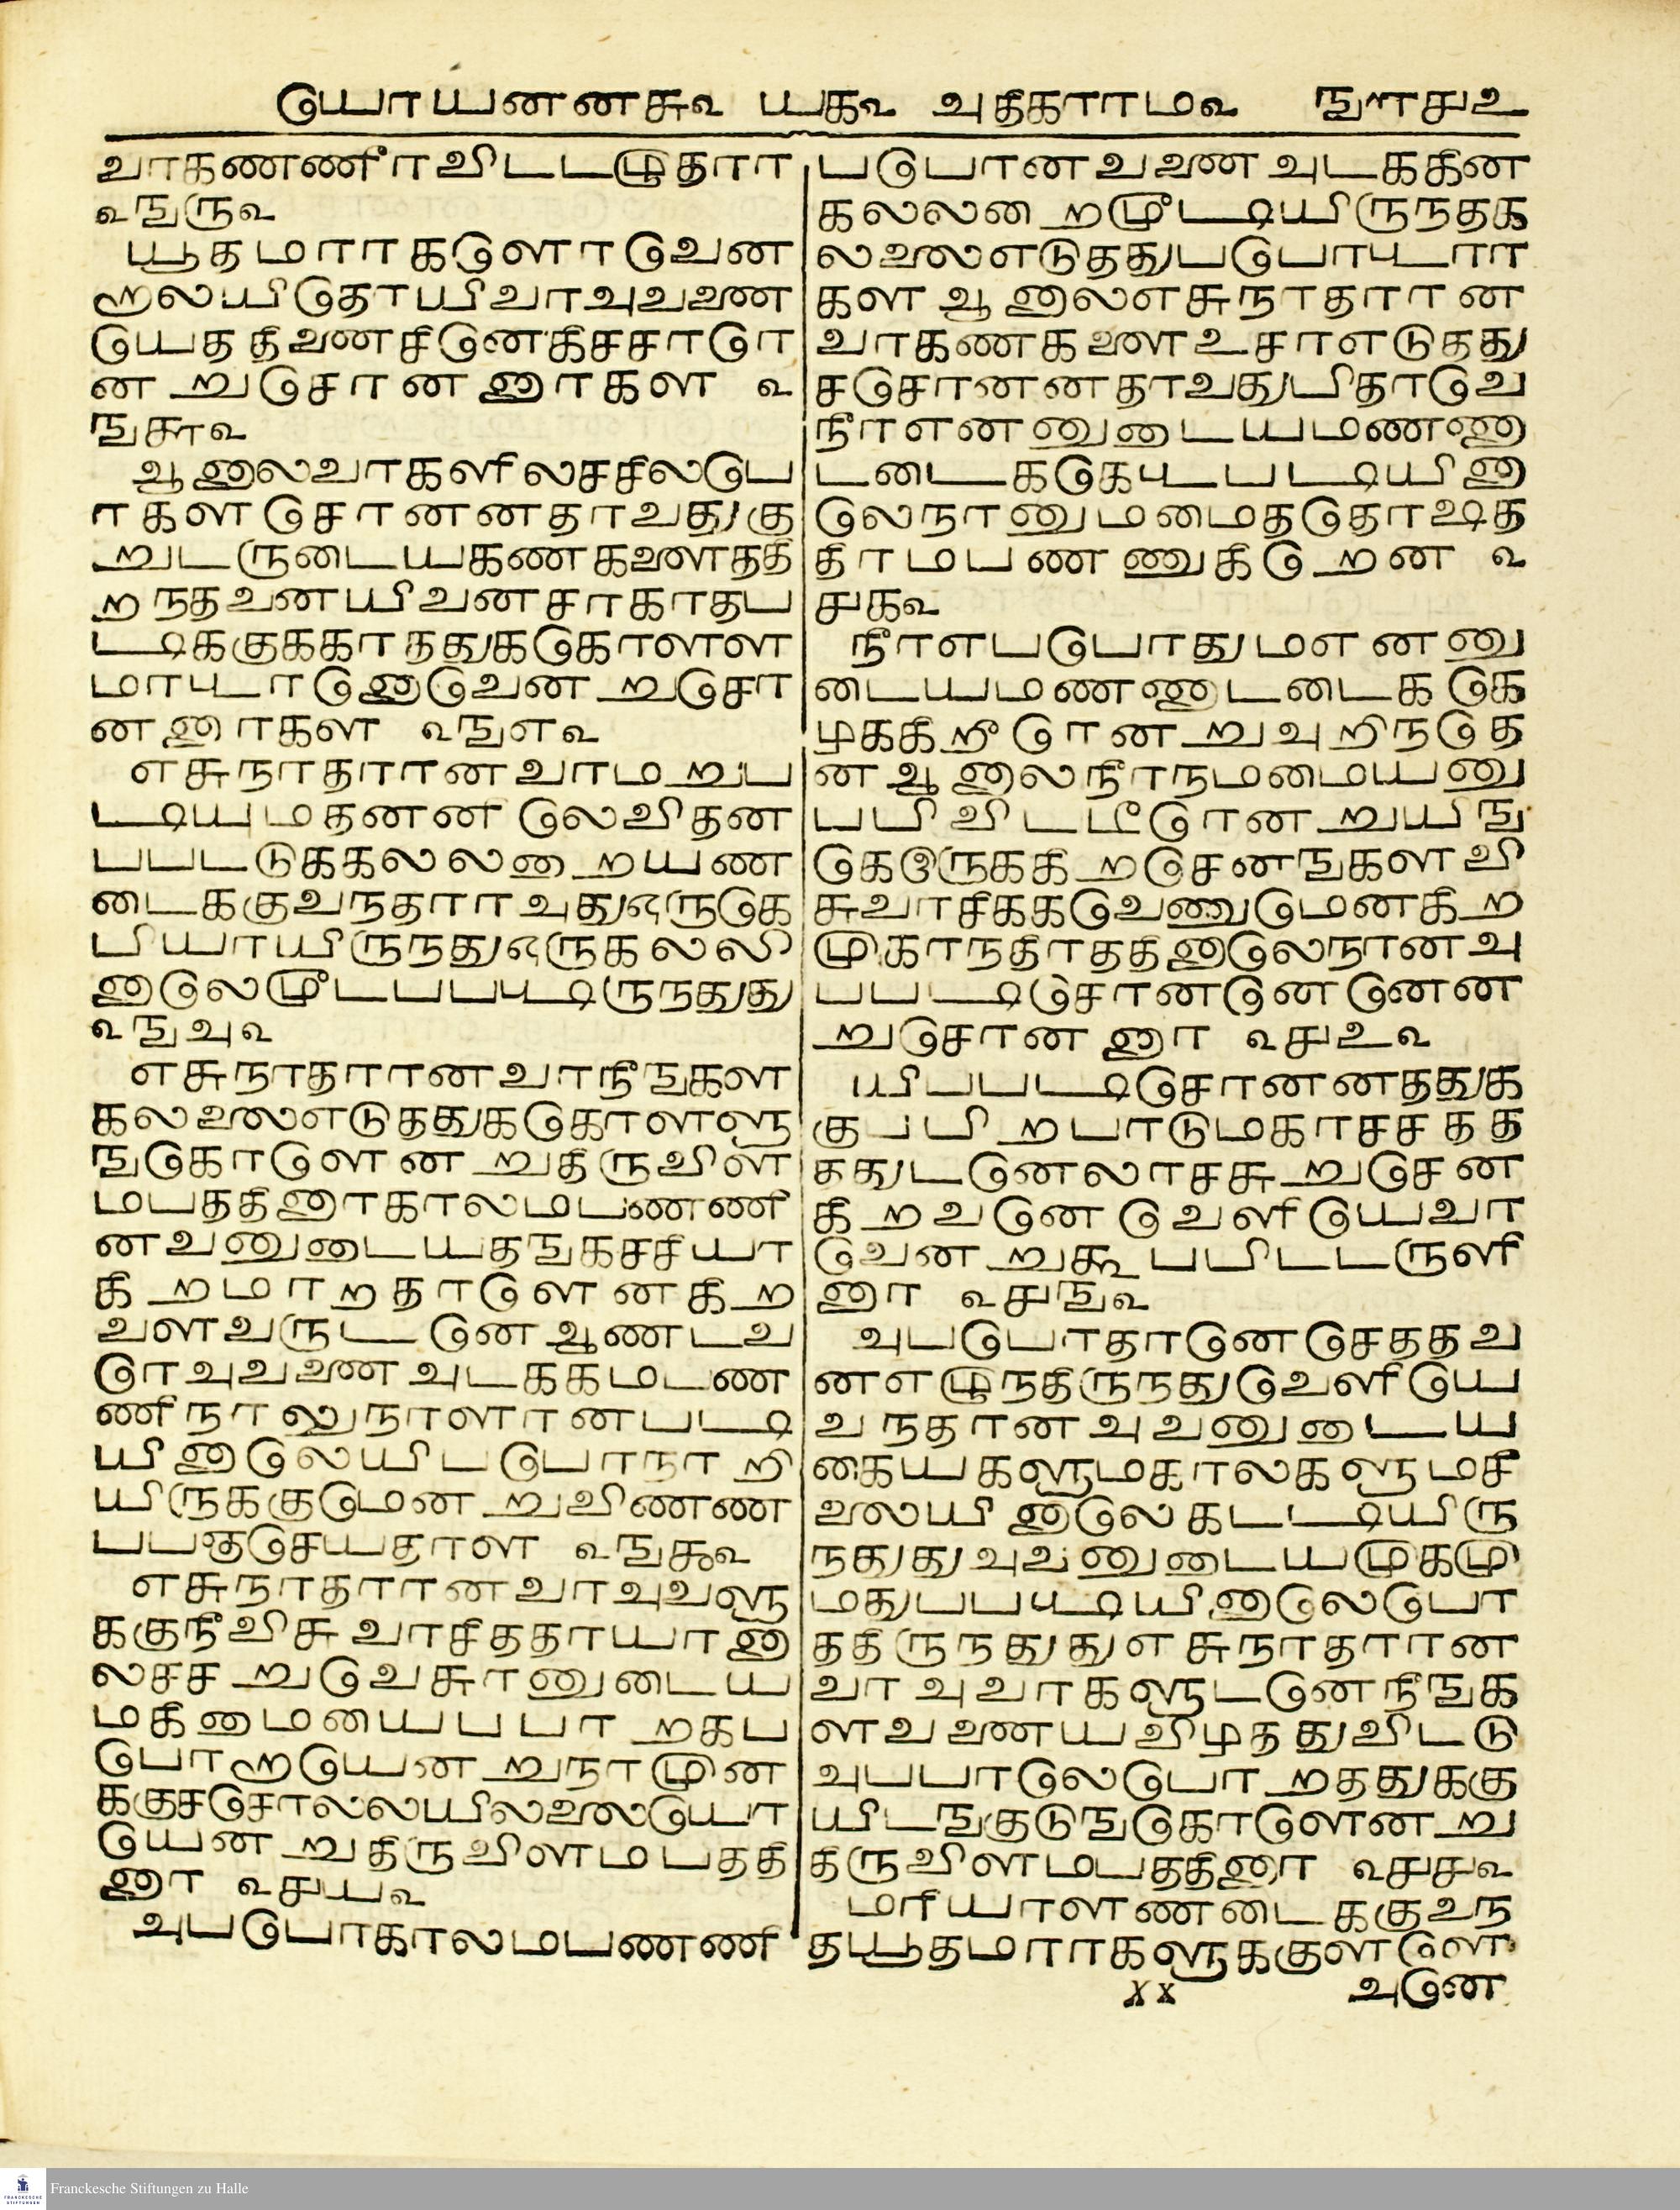 யொயனனசு௨ யக௨ அதிகாரம௨ ௩௱௪௨
வரகணணீரவிடடழுதார
௨௩௫௨
யூதமாரகளொடுவன
றலயிதொயிவரஅவணை
யெததினைசிநெகிசசாரொ
னறுசொனனாரகள ௨
௩௬௨
ஆனாலவரகளிலசசிலபெ
ரகளசொனனதாவதுகு
றுடருடையகணகளைததி
றநதவனயிவனசாகாதப
டிககுககாததுககொளள
மாடடானொவெனறுசொ
னனாரகள ௨௩௭௨
எசுநாதரானவரமறுப
டியுமதனனிலெவிதன
பபடடுககலலறையண
டைககுவநதாரஅதுஒருகெ
பியாயிருநதுஒருகலலி
னாலெமூடபபடடிருநதுது
௨௩௮௨
எசுநாதரானவரநீஙகள
கலலைஎடுததுககொளளு
ஙகொளெனறுதிருவிள
மபததினாரகாலமபணணி
னவனுடையதஙகசசியா
கிறமாறதாளெனகிற
வளவருடனெஆணடவ
ரெஅவணைஅடககமபண
ணிநாலுநாளானபடி
யினாலெயிபபொநாறி
யிருககுமெனறுவிணண
பபஞசெயதாள ௨௩௯௨
எசுநாதரானவரஅவளு
ககுநீவிசுவாசிததாயானா
லசசறுவெசுரனுடைய
மகிமையைபபாறகப
பொறயெனறுநாமுன
ககுசசொலலயிலலையொ
யெனறுதிருவிளமபததி
னார ௨௪௰௨
அபபொகாலமபணணி
படபொனவணைஅடககின
கலலறைமூடியிருநதக
லலைஎடுததுபபொடடார
களஆனாலஎசுநாதரான
வரகணகளைஉசரஎடுதது
சசொனனதாவதுபிதாவெ
நீரஎனனுடையமணணா
டடைககெடடபடியினா
லெநானுமமைதெதொஷத
திரமபணணுகிறென ௨
௪௧௨
நீரஎபபொதுமஎனனு
டையமணணாடடைககெ
ழககிறீரெனறுஅறிநதெ
னஆனாலநீரநமமையனு
பபிவிடடீரெனறுயிங
கெயிருககிறசெனஙகளவி
சுவாசிககவெணுமெனகிற
முகாநதிரததினாலெநானஅ
பபடிசொனனெனென
றுசொனனார ௨௪௨௨
யிபபடிசொனனததுக
குபபிறபாடுமகாசசதத
ததுடனெலாசசுறுசென
கிறவனெவெளியெவா
வெனறுகூபபிடடருளி
னார ௨௪௩௨
அபபொதானெசெததவ
னஎழுநதிருநதுவெளியெ
வநதானஅவனுடைய
கையகளுமகாலகளுமசீ
லையினாலெகடடியிரு
நதுதுஅவனுடையமுகமு
மதுபபடடியினாலெபொ
ததிருநதுதுஎசுநாதரான
வரஅவரகளுடனெநீஙக
ளவணையவிழததுவிடடு
அபபாலெபொறததுககு
யிடஙகுடுஙகொளெனறு
திருவிளமபததினார ௨௪௪௨
மரியாளணடைககுவந
தயூதமாரகளுககுளளெ
X x அனெ
Franckesche Stiftungen zu Halle